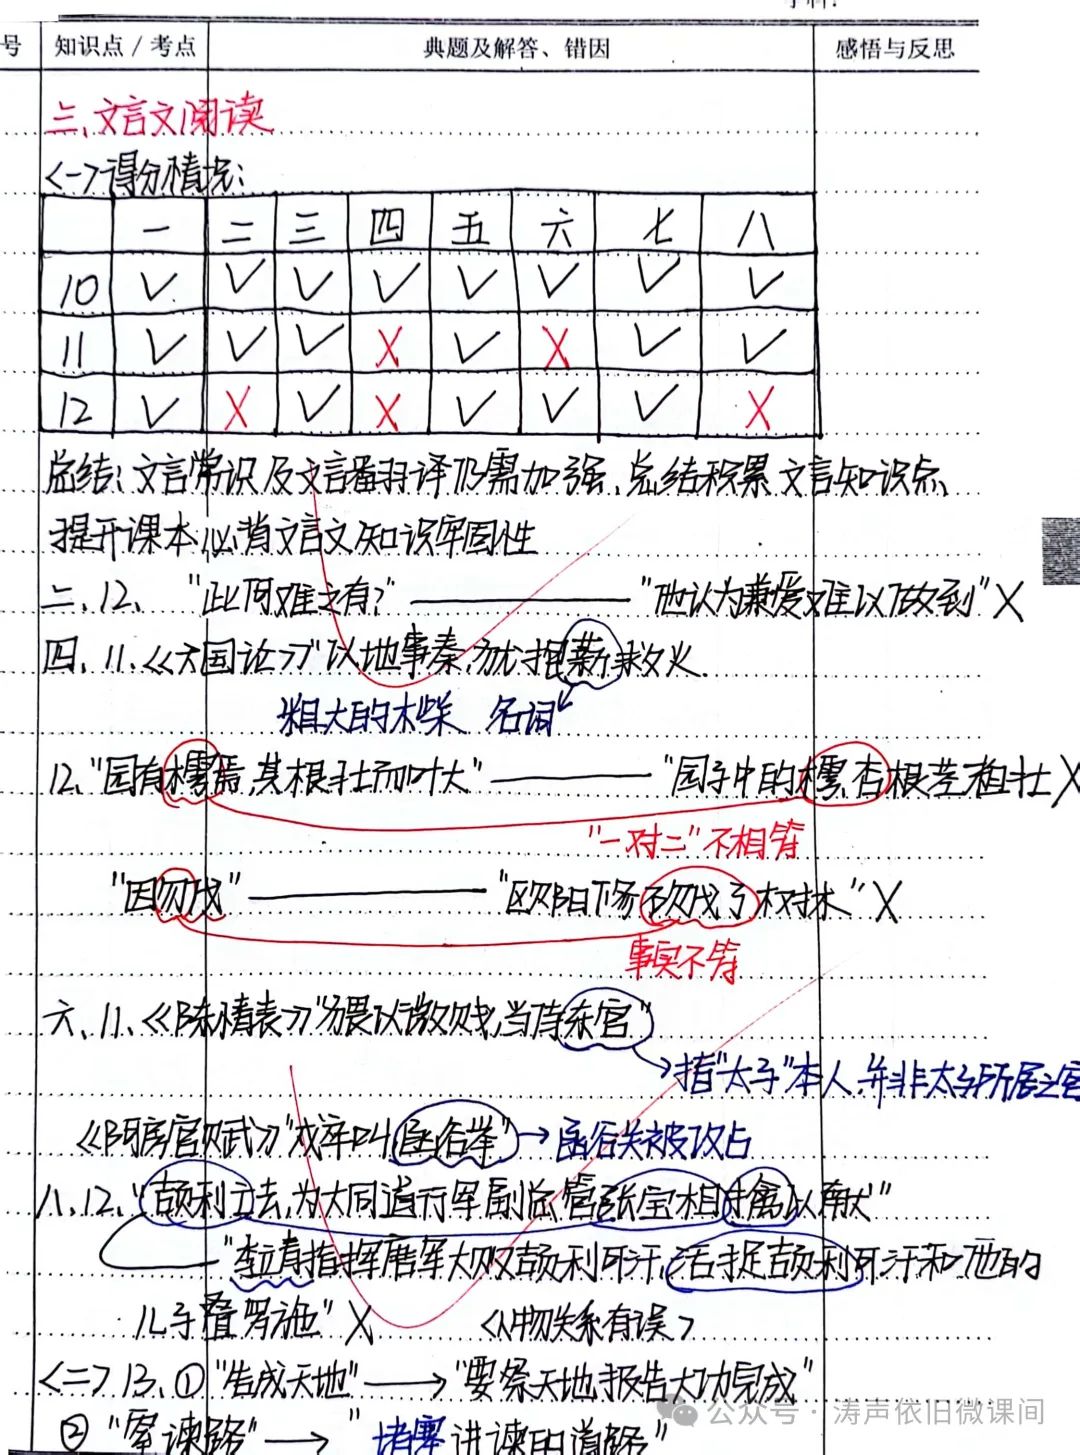 号 知识点 / 考点 典题及解答、错因 感悟与反思
三、文言文阅读
<一>得分情况：
一 二 三 四 五 六 七 八
10 ✓ ✓ ✓ ✓ ✓ ✓ ✓ ✓
11 ✓ ✓ ✓ X ✓ X ✓ ✓
12 ✓ X ✓ X ✓ ✓ ✓ X
总结：文言常识及文言翻译仍需加强、总结积累文言知识点、
提升课本必背文言文知识牢固性
二、12、 "此何难之有？" —— "他认为兼爱难以做到" X
四、11.《六国论》"以地事秦，犹抱薪救火.
粗大的木柴 名词
12."园有樗焉，其根壮而叶大" —— "园子中的樗、杏根茎粗壮 X
"一对二"不相符
"因勿伐" —— "欧阳修砍伐了杈树木" X
事实不符
六、11、《陈情表》"猥以微贱，当侍东宫"
→指"太子"本人，并非太子所居之宫
《阿房宫赋》"戍卒叫函谷举"→函谷关被攻占
八、12、"颉利立去，为大同道行军副总管张宝相擒以献"
"李靖指挥唐军大败颉利可汗，活捉颉利可汗和他的
儿子叠罗施" X <人物关系有误>
<二>13、① "告成天地" → "要祭天地，报告大功完成"
② "窒谏路" → "堵塞进谏的道路"
公众号·涛声依旧微课间